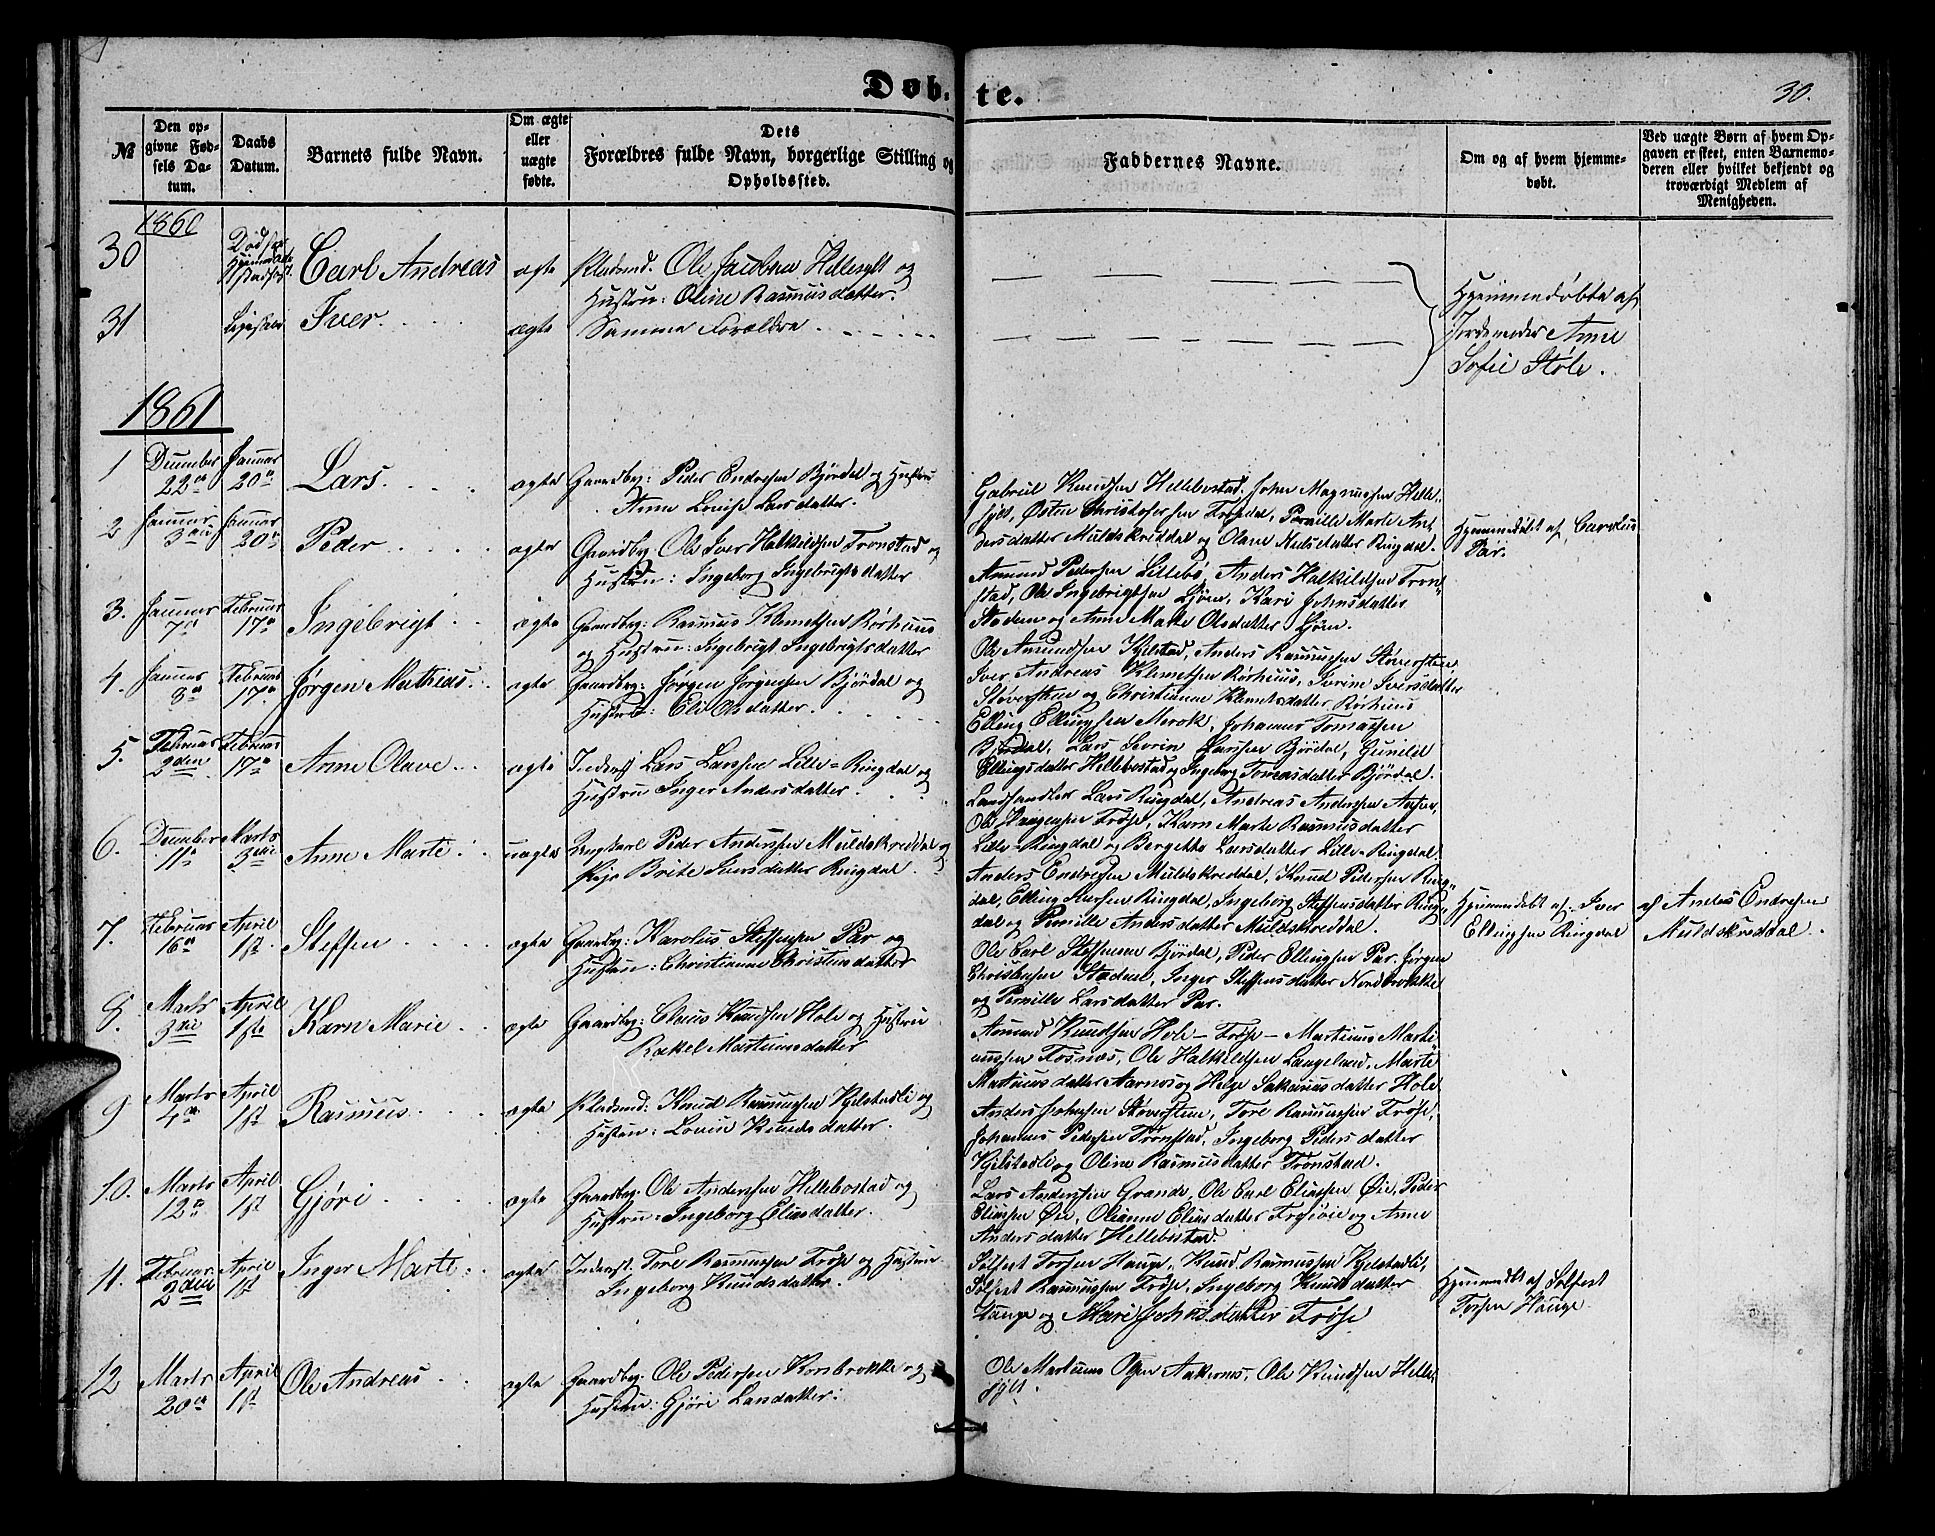 Døb- te. 30.
№
Den opgivne Fødsels Datum.
Daabs Datum.
Barnets fulde Navn.
Om ægte eller uægte fødte.
Dets Forældres fulde Navn, borgerlige Stilling og Opholdssted.
Faddernes Navne.
Om og af hvem hjemmedøbt.
Ved uægte Børn af hvem Opgaven er skeet, enten Barnemoderen eller hvilket bekjendt og troværdigt Medlem af Menigheden.
1860
30 Carl Andreas ægte Pladsmd. Ole Jacobsen Hellesylt og
Hustru: Oline Rasmusdatter.
31 Iver. ægte Samme Forældre
Hjemmedøbte af
Jordemoder Anne
Sofie Støle.
1861
1 December 22de Januar 20de Lars. ægte Gaardbr: Peder Endresen Bjørdal og Hustru
Anne Lovise Larsdatter.
Gabriel Knudsen Hellebostad, John Magnussen Helle-
sylt, Østen Christofersen Frøsdal, Pernille Marte An-
dersdatter Muldskreddal og Olave Nilsdatter Ringdal.
2 Januar 3die Januar 20de Peder ægte Gaardbr: Ole Iver Halkildsen Tronstad og
Hustru: Ingeborg Ingebrigtsdatter
Amund Pedersen Lillebø, Anders Halkildsen Tron-
stad, Ole Ingebrigtsen Ljøen, Kari Johnsdatter
Staden og Anne Marte Olsdatter Ljøen.
Hjemmedøbt af Carolus
Par.
3. Januar 7de Februar 17de Ingebrigt ægte Gaardbr: Rasmus Klemetsen Rørhuus
og Hustru: Ingebrigt Ingebrigtsdatter
Ole Amundsen Kjelstad, Anders Rasmussen Støversten
Iver Andreas Klemetsen Rørhuus, Ivrine Iversdatter
Støversten og Christianne Klemetsdatter Rørhuus
4. Januar 8de Februar 17de Jørgen Mathias. ægte Gaardbr: Jørgen Jørgensen Bjørdal og
Hustru: Eli Olsdatter.
Elling Ellingsen Merok, Johannes Tomassen
Bjørdal, Lars Severin Larsen Bjørdal, Gunild
Ellingsdatter Hellebostad og Ingeborg Tomasdatter Bjørdal.
5. Februar 2den Februar 17de Anne Olave. ægte Inderst Lars Larsen Lille-Ringdal og
Hustru Inger Andersdatter.
Landhandler Lars Ringdal, Andreas Andersen
Ole Haagensen Frøse, Karn Marte Rasmusdatter
Lille-Ringdal og Bergette Larsdatter Lille-Ringdal.
6. December 11te Marts 3die Anne Marte uægte Ungkarl Peder Andersen Muldskreddal og
Pige Brite Iversdatter Ringdal.
Anders Endresen Muldskreddal, Knud Pedersen Ring-
dal, Elling Iversen Ringdal, Ingeborg Steffensdatter Ring-
dal og Pernille Andersdatter Muldskreddal.
Hjemmedøbt af Iver
Ellingsen Ringdal
af Anders Endresen
Muldskreddal.
7. Februar 16de April 1ste Steffen ægte Gaardbr: Karolus Steffensen Par og
Hustru: Christianne Christensdatter
Ole Carl Steffensen Bjørdal, Peder Ellingsen Par, Jørgen
Christensen Stadem, Inger Steffensdatter Nordbrække
og Pernille Larsdatter Par.
8. Marts 3die April 1ste Karn Marie ægte Gaardbr: Claus Knudsen Hole og Hustru
Rakel Martinusdatter
Amund Knudsen Hole - Frøse - Martinus Marti-
nussen Fosnæs, Ole Halkildsen Langeland, Marte
Martinusdatter Aarnes og Helge Sakariusdatter Hole
9 Marts 4de April 1ste Rasmus ægte Pladsmd: Knud Rasmussen Kjelstadli og
Hustru: Lovise Knudsdatter.
Anders Johnsen Støversten, Tore Rasmussen Frøse,
Johannes Pedersen Tronstad, Ingeborg Pedersdatter
Kjelstadli og Oline Rasmusdatter Tronstad.
10. Marts 12te April 1ste Gjøri ægte Gaardbr: Ole Andersen Hellebostad og
Hustru: Ingeborg Eliasdatter.
Lars Andersen Grande, Ole Carl Eliassen Øie, Peder
Eliassen Øie, Olianne Eliasdatter Frøsøie og Anne
Andersdatter Hellebostad.
11. Februar 2den April 1ste Inger Marte ægte Inderst. Tore Rasmussen Frøse og Hustru
Ingeborg Knudsdatter
Solfest Torsen Hauge, Knud Rasmussen Kjelstadli,
Solfest Rasmussen Frøse, Ingeborg Knudsdatter
Hauge og Mari Johnsdatter Frøse
Hjemmedbt af Solfest
Torsen Hauge
12 Marts 20de April 1ste Ole Andreas ægte Gaardbr: Ole Pedersen Korsbrække og
Hustru: Gjøri Larsdatter.
Ole Martinus Olsen Aakernes, Ole Knudsen Helle-
sylt.